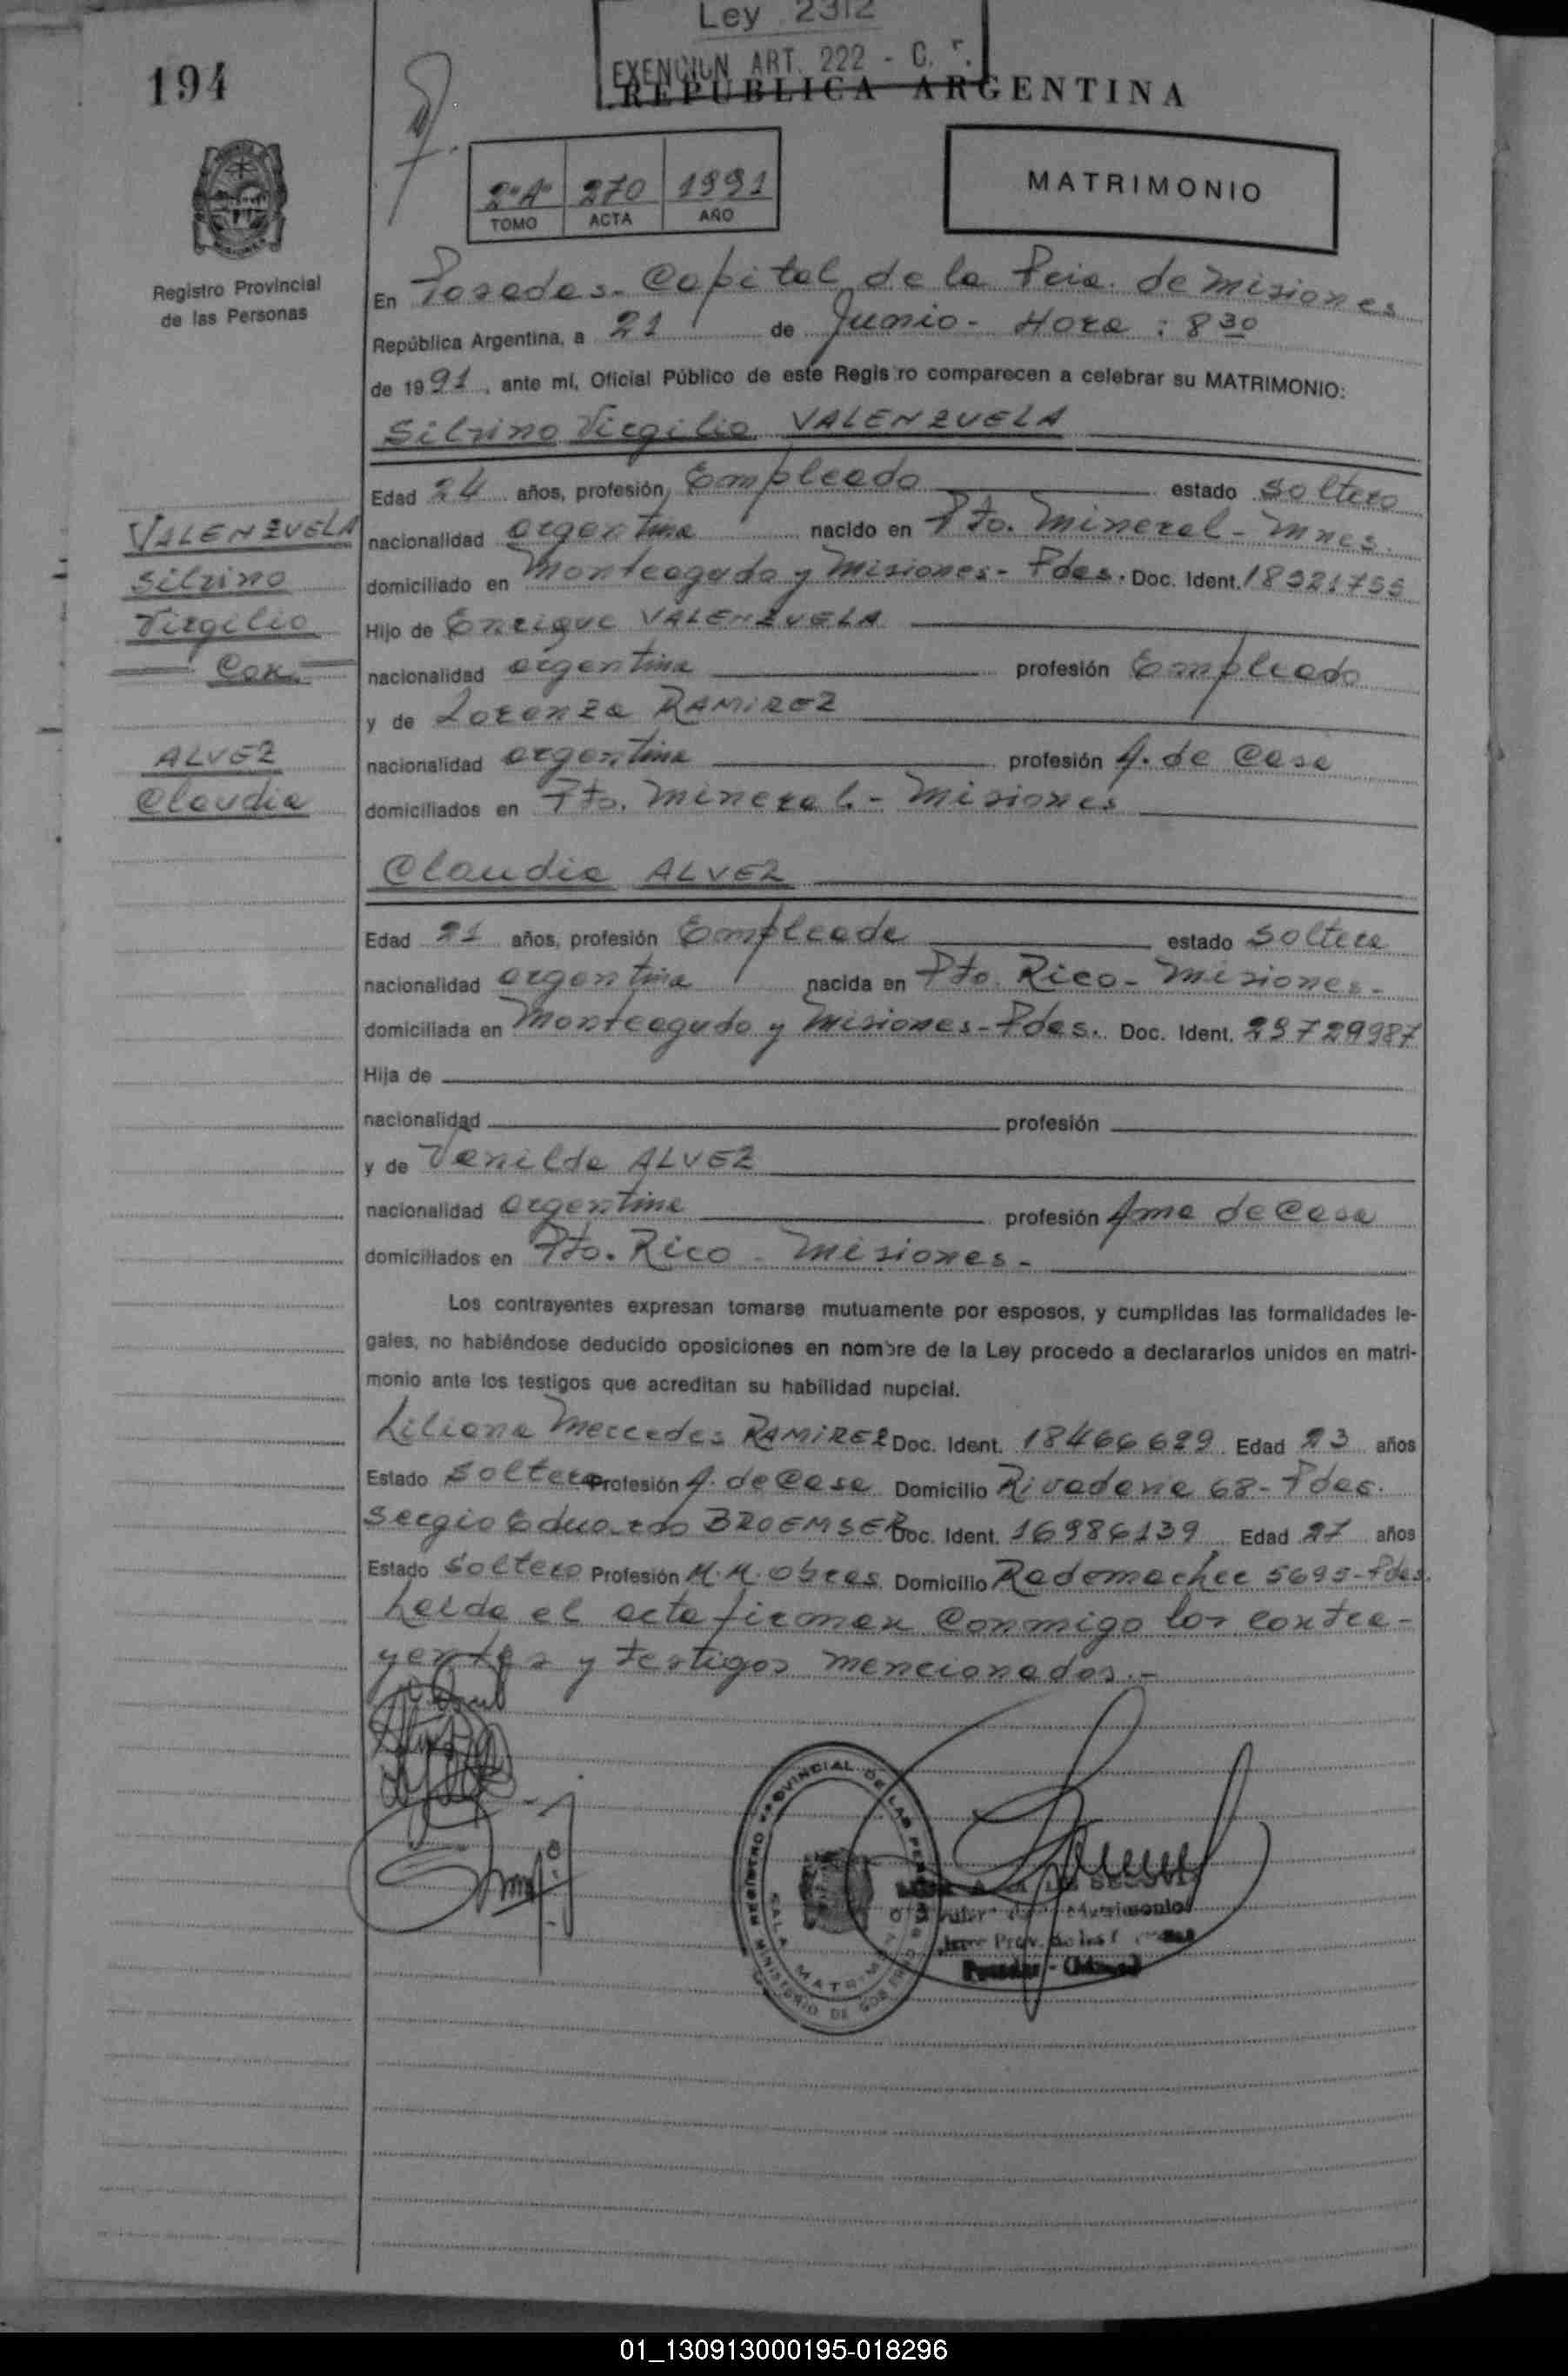 194
Ley 2312
EXENCION ART. 222 - C. F.
REPUBLICA ARGENTINA
2º"A" 270 1991
TOMO ACTA AÑO
MATRIMONIO
Registro Provincial
de las Personas
En Posadas - Capital de la Pcia. de Misiones
República Argentina, a 21 de Junio - Hora : 8 30
de 1991, ante mí, Oficial Público de este Registro comparecen a celebrar su MATRIMONIO:
Silvino Virgilio VALENZUELA
Edad 24 años, profesión Empleado estado Soltero
nacionalidad argentina nacido en Pto. Mineral - Mnes.
domiciliado en Monteagudo y Misiones - Pdas. Doc. Ident. 18321755
Hijo de Enrique VALENZUELA
nacionalidad argentina profesión Empleado
y de Lorenza RAMIREZ
nacionalidad argentina profesión A. de Casa
domiciliados en Pto. Mineral. - Misiones
VALENZUELA
Silvino
Virgilio
Con.
ALVEZ
Claudia
Claudia ALVEZ
Edad 21 años, profesión Empleada estado Soltera
nacionalidad argentina nacida en Pto. Rico - Misiones -
domiciliada en Monteagudo y Misiones - Pdas. Doc. Ident. 23729987
Hija de
nacionalidad profesión
y de Vanilda ALVEZ
nacionalidad argentina profesión Ama de Casa
domiciliados en Pto. Rico - Misiones -
Los contrayentes expresan tomarse mutuamente por esposos, y cumplidas las formalidades le-
gales, no habiéndose deducido oposiciones en nombre de la Ley procedo a declararlos unidos en matri-
monio ante los testigos que acreditan su habilidad nupcial.
Liliana Mercedes RAMIREZ Doc. Ident. 18466629 Edad 23 años
Estado Soltera Profesión A. de Casa Domicilio Rivadavia 68 - Pdas.
Sergio Eduardo BROEMSER Doc. Ident. 16986139 Edad 27 años
Estado Soltero Profesión M.M. Obras Domicilio Rademacher 5695 - Pdas.
Leída el acta firman conmigo los contra-
yentes y testigos mencionados.-
REGISTRO PROVINCIAL DE LAS PERSONAS
SALA MATRIMONIO
MINISTERIO DE GOBIERNO
DE SEGOVIA
Matrimonios
Posadas - (Misiones)
01_130913000195-018296